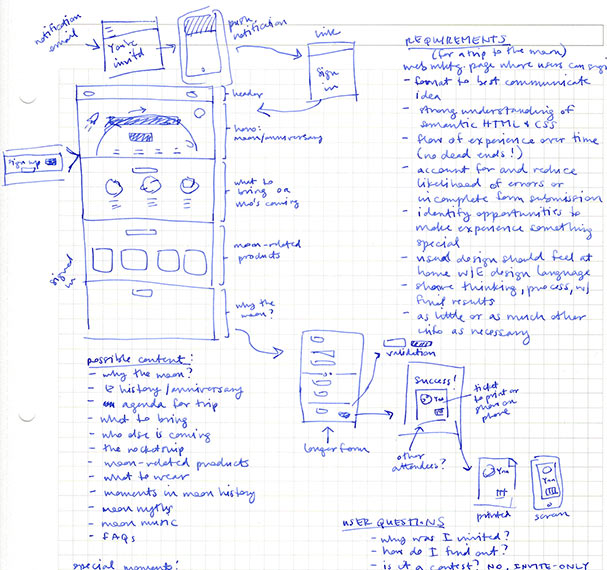 notification
email
You're
invitd
push
notification
link
sign
in
header
hero:
moon/anniversary
sign up
what to
bring or
who's coming
moon-related
products
signed
in
why the
moon?
REQUIREMENTS
(for a trip to the moon)
web mktg. page where users can sign
- format to best communicate
idea
- strong understanding of
semantic HTML & CSS
- flow of experience over time
(no dead ends!)
- account for and reduce
likelihood of errors or
incomplete form submission
- identify opportunities to
make experience something
special
- visual design should feel at
home w/E design language
- share thinking, process, w/
final results
- as little or as much other
info as necessary
possible content:
- why the moon?
- history/anniversary
- agenda for trip
- what to bring
- who else is coming
- the rocketship
- moon-related products
- what to wear
- moments in moon history
- moon myths
- moon music
- FAQs
special moments:
longer form
validation
success!
You
ticket
to print or
show on
phone
other
attendees?
You
printed
You
screen
USER QUESTIONS
- why was I invited?
- how do I find out?
- is it a contest? NO, INVITE-ONLY